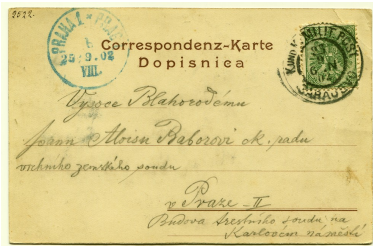 2022.
PRAHA 1 * PRAG
25/9.02
VIII.
Correspondenz-Karte
Dopisnica
MILIT. POST
SARAJEVO
Vysoce Blahorodému
Panu Aloisu Baborovi ck. radu
vrchního zemského soudu
v Praze - II
Budova trestního soudu na
Karlovem náměstí